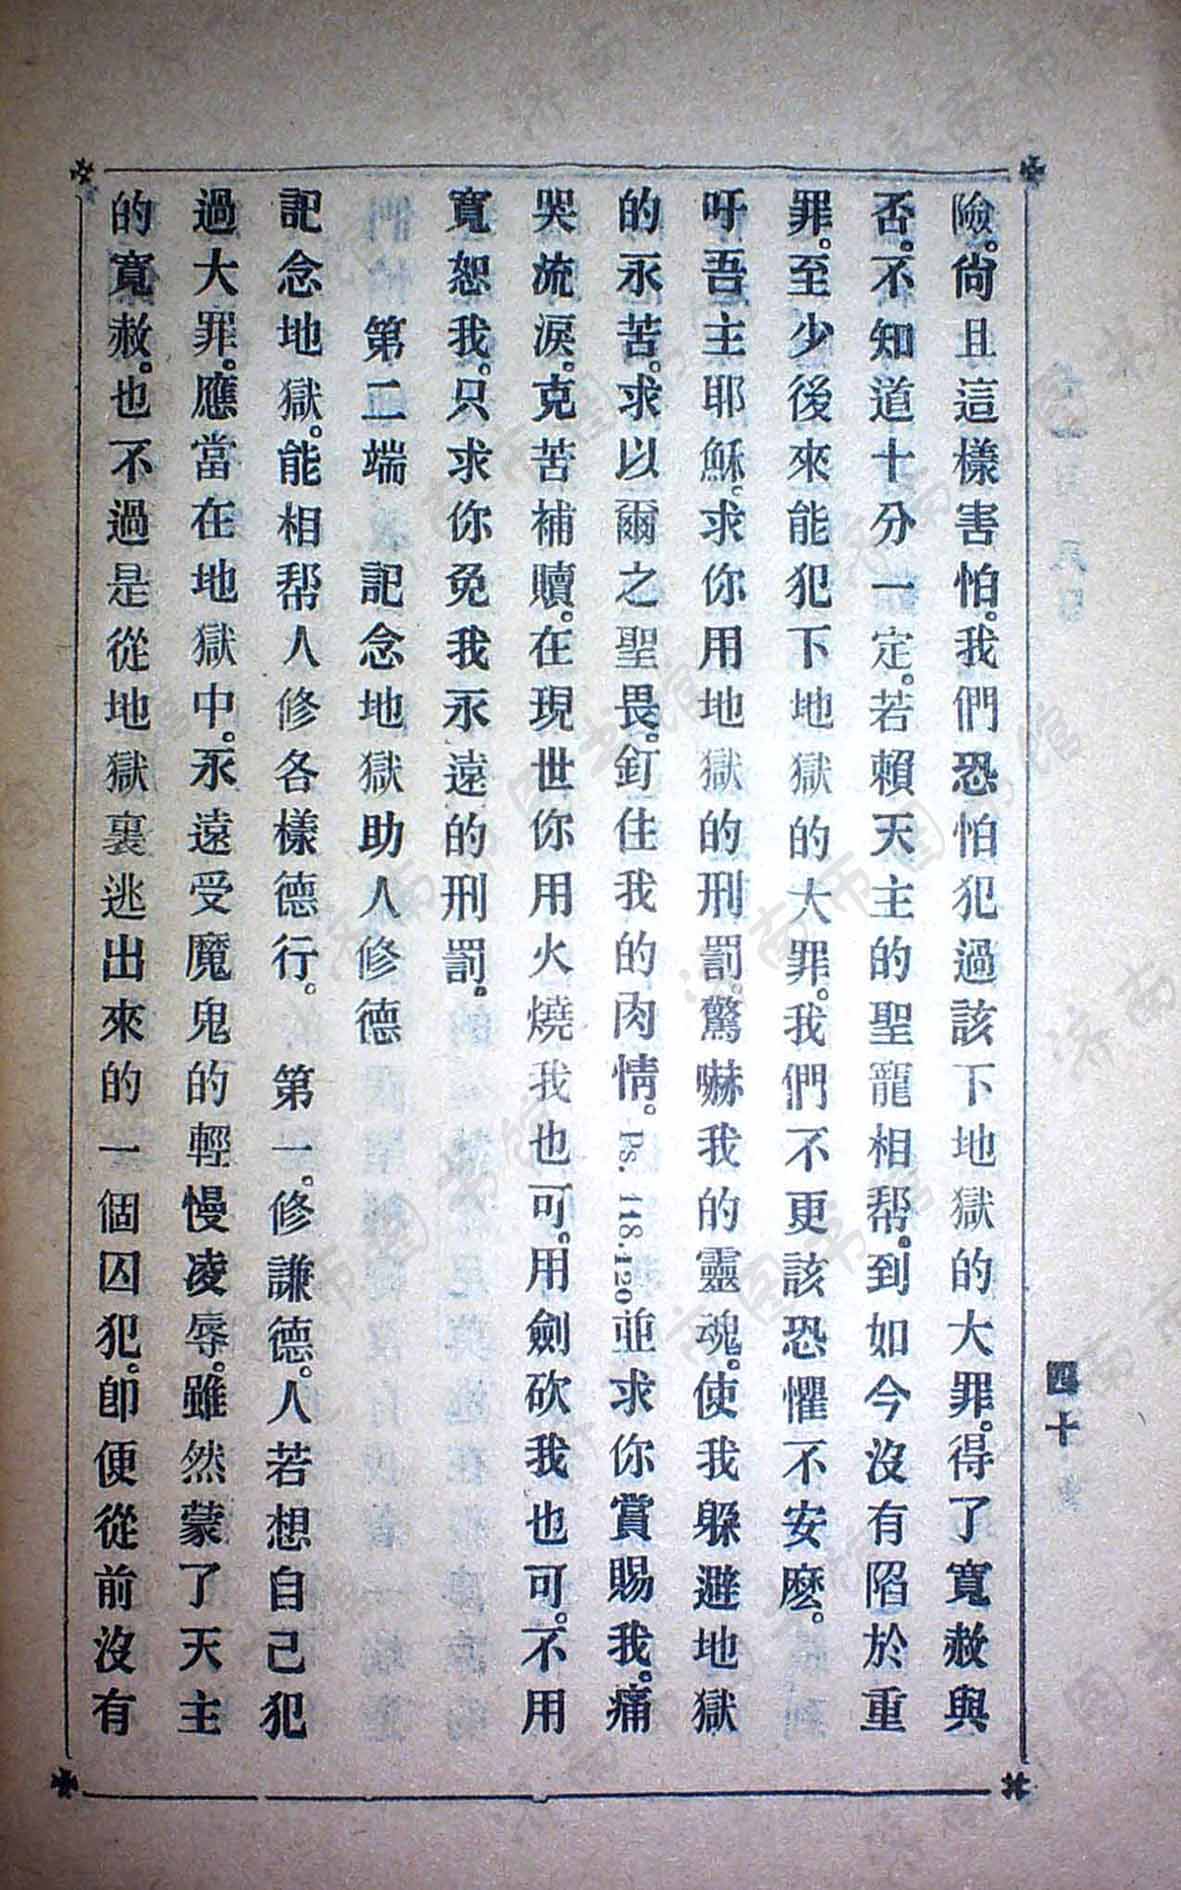 險。尙且這樣害怕。我們恐怕犯過該下地獄的大罪。得了寬赦與
否。不知道十分一定。若賴天主的聖寵相帮。到如今沒有陷於重
罪。至少後來能犯下地獄的大罪。我們不更該恐懼不安麽。
吁吾主耶穌。求你用地獄的刑罰。驚嚇我的靈魂。使我躲避地獄
的永苦。求以爾之聖畏。釘住我的肉情。Ps. 118.120並求你賞賜我。痛
哭流淚。克苦補贖。在現世你用火燒我也可。用劍砍我也可。不用
寬恕我。只求你免我永遠的刑罰。
第二端　記念地獄助人修德
記念地獄。能相帮人修各樣德行。　第一。修謙德。人若想自己犯
過大罪。應當在地獄中。永遠受魔鬼的輕慢凌辱。雖然蒙了天主
的寬赦。也不過是從地獄裏逃出來的一個囚犯。卽便從前沒有
四十
济南市图书馆